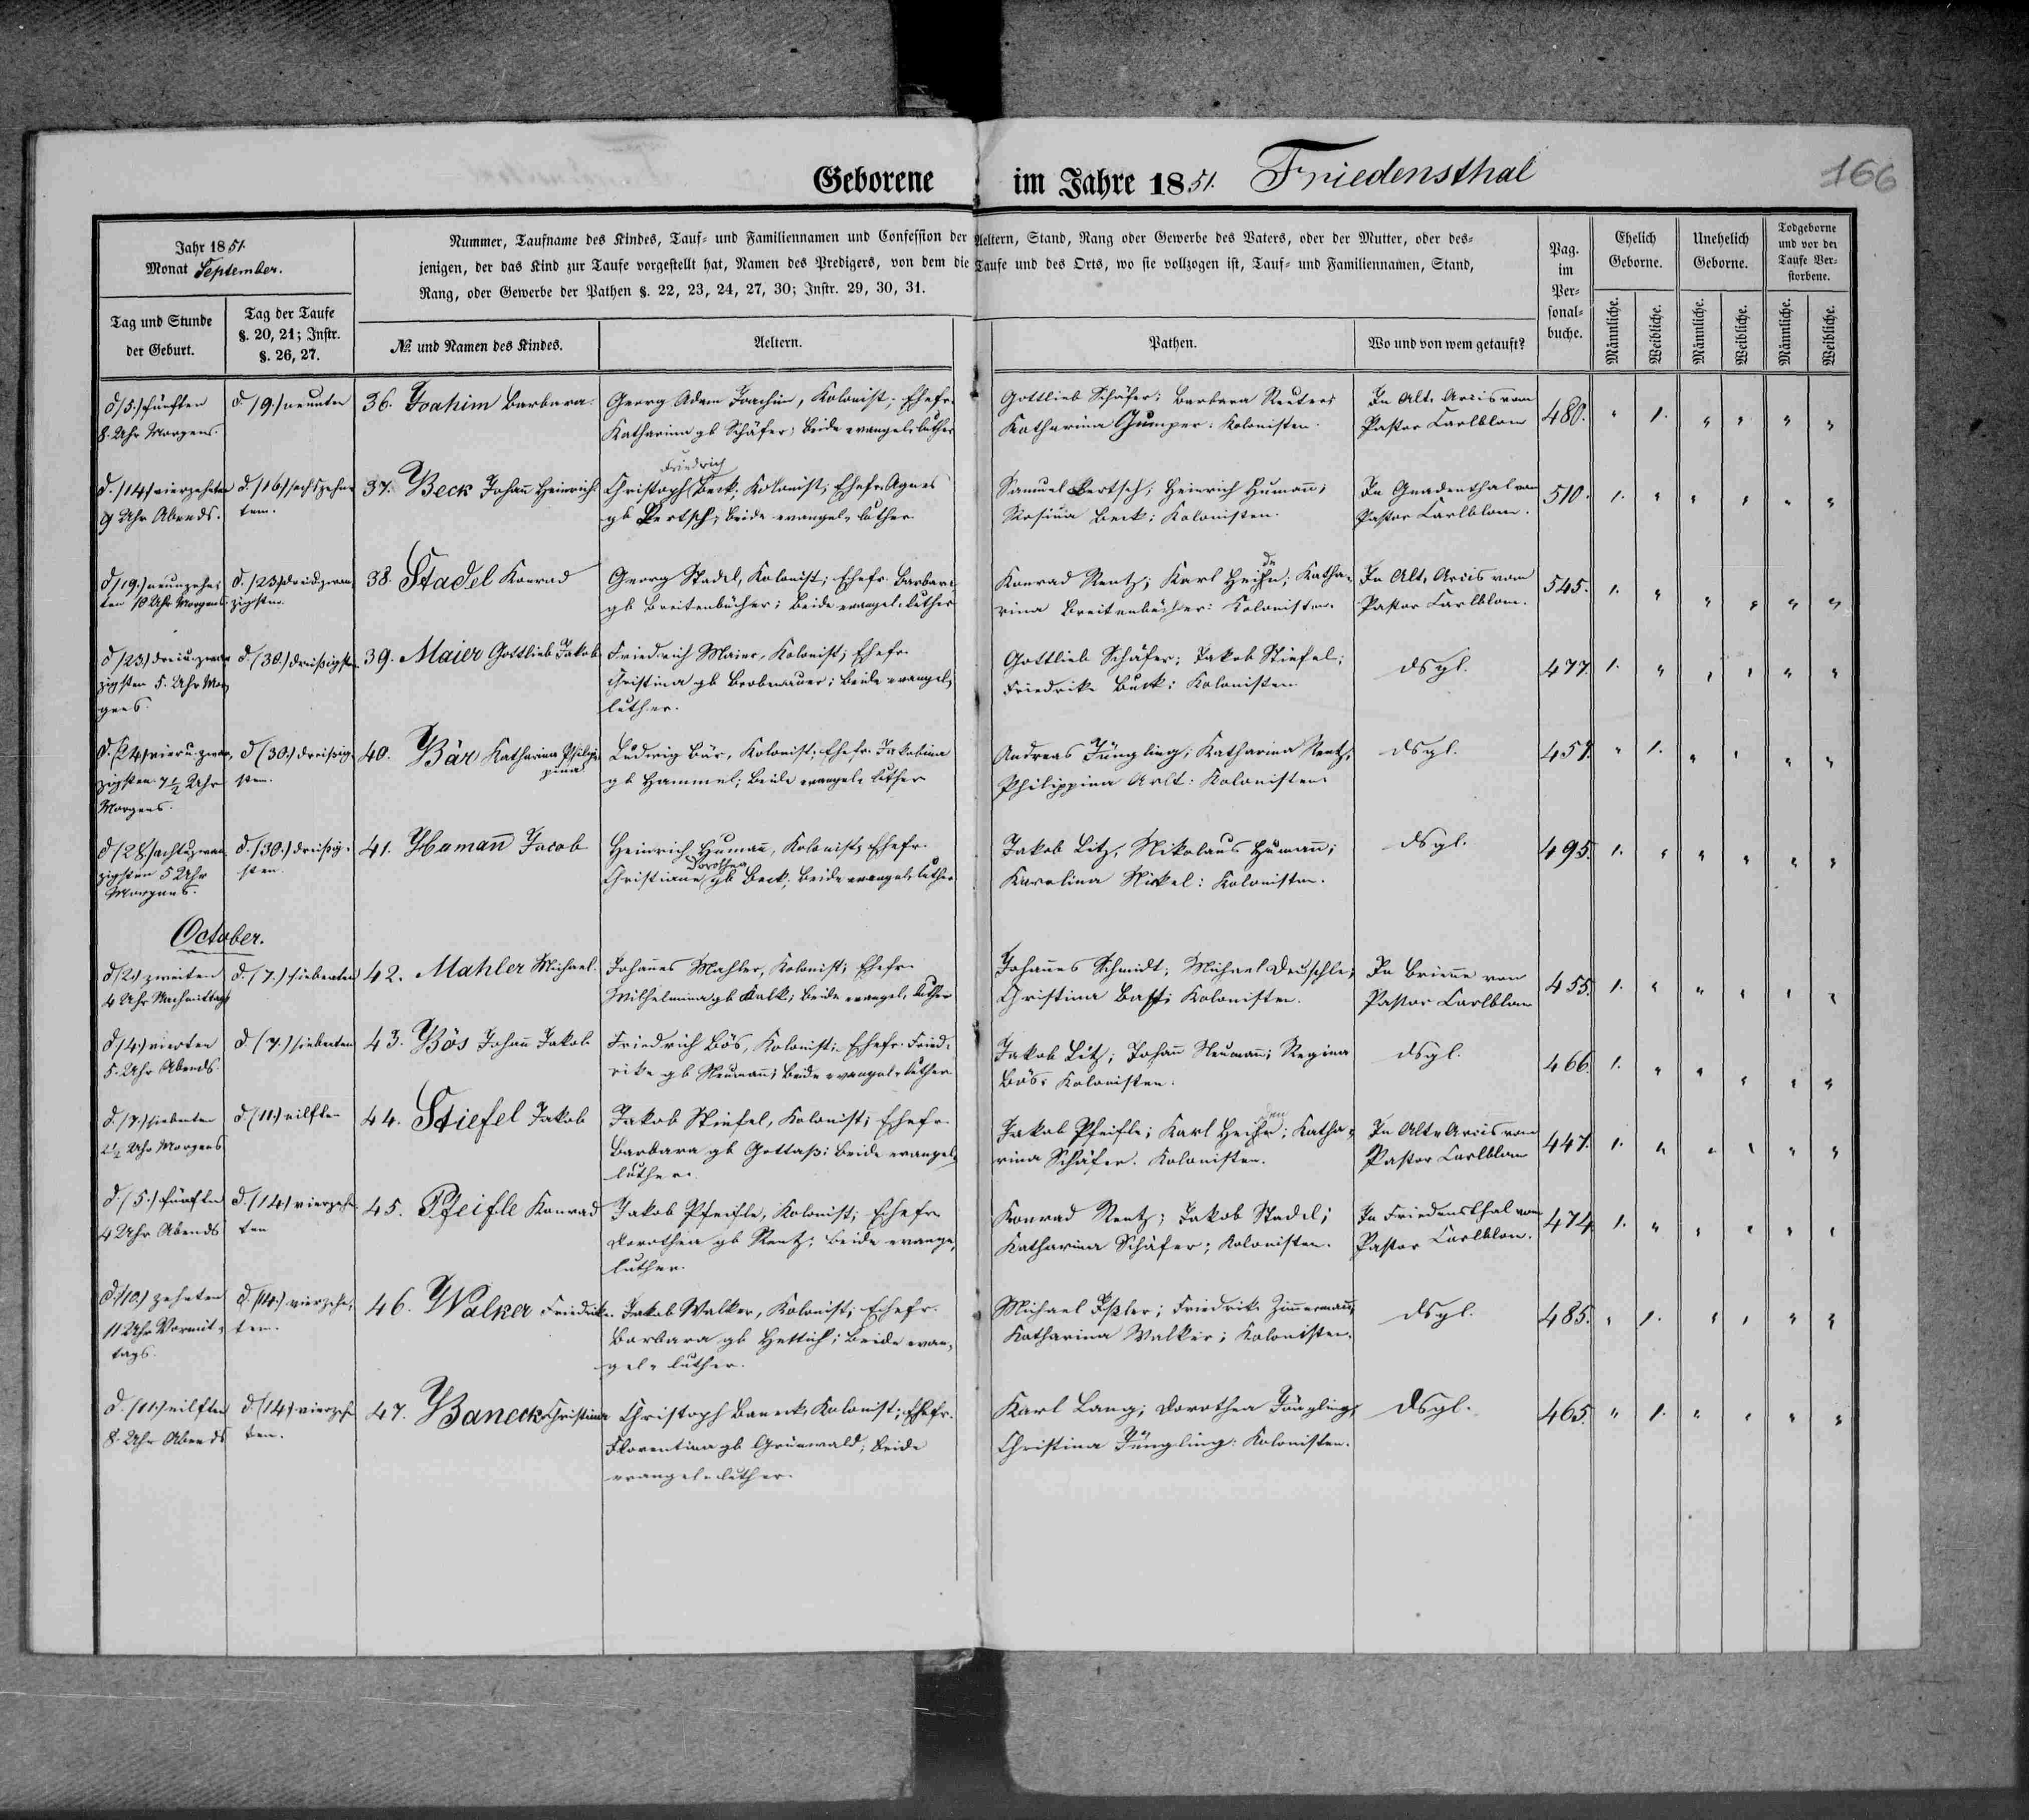 Geborene im Jahre 1851. Friedensthal
166
Jahr 1851.
Monat September.
Nummer, Taufname des Kindes, Tauf- und Familiennamen und Confession der Aeltern, Stand, Rang oder Gewerbe des Vaters, oder der Mutter, oder des-
jenigen, der das Kind zur Taufe vorgestellt hat, Namen des Predigers, von dem die Taufe und des Orts, wo sie vollzogen ist, Tauf- und Familiennamen, Stand,
Rang, oder Gewerbe der Pathen §. 22, 23, 24, 27, 30; Instr. 29, 30, 31.
Tag und Stunde
der Geburt.
Tag der Taufe
§. 20, 21; Instr.
§. 26, 27.
№ und Namen des Kindes.
Aeltern.
Pathen.
Wo und von wem getauft?
Pag.
im
Per-
sonal-
buche.
Ehelich
Geborne.
Unehelich
Geborne.
Todgeborne
und vor der
Taufe Ver-
storbene.
Männliche.
Weibliche.
Männliche.
Weibliche.
Männliche.
Weibliche.
d. (5.) fünften
8. Uhr Morgens.
d. (9.) neunten
36. Joahim Barbara.
Georg Adam Joachim, Kolonist; Ehefr.
Katharina gb Schäfer; beide evangel. luther
Gottlieb Schäfer; Barbara Reuter;
Katharina Gumper: Kolonisten.
In Alt. Arcis vom
Pastor Carlblom
480. " 1. " " " "
d. (14) vierzehnten
9 Uhr Abends.
d. (16) sechszehn-
tem.
37. Beck Johañ Heinrich
Friedrich
Christoph Beck, Kolonist; Ehefr. Agnes
gb Bertsch; beide evangel. luther
Samuel Bertsch; Heinrich Humañ;
Rosina Beck; Kolonisten.
In Gnadenthal vom
Pastor Carlblom.
510. 1. " " " " "
d. (19.) neunzehn-
ten 10 Uhr Morgens
d. (23) dreiu.zwan-
zigsten.
38. Stadel Konrad
Georg Stadel, Kolonist; Ehefr. Barbara
gb Breitenbücher; beide evangel. luther
Konrad Rentz; Karl Heihn; Katha-
rina Breitenbücher: Kolonisten.
In Alt. Arcis vom
Pastor Carlblom.
545. 1. " " " " "
d. (23.) dreiu.zwan-
zigsten 5. Uhr Mor-
gens.
d. (30.) dreißigsten
39. Maier Gottlieb Jakob
Friedrich Maier, Kolonist; Ehefr.
Christina gb Brobmauer; beide evangel.
luther.
Gottlieb Schäfer; Jakob Stiefel;
Friedrike Buck: Kolonisten
dsgl.
477. 1. " " " " "
d. (24) vieru.zwan-
zigsten 7½ Uhr
Morgens.
d. (30.) dreißig-
sten.
40. Bär Katharina Philip-
pina
Ludwig Bär, Kolonist; Ehefr. Jakobina
gb Hammel; beide evangel. luther
Andreas Jüngling; Katharina Rentz;
Philippina Arlt: Kolonisten
dsgl.
457. " 1. " " " "
d. (28) achtu.zwan-
zigsten 5 Uhr
Morgens.
d. (30.) dreißig-
sten.
41. Human̄ Jacob
Heinrich Humañ, Kolonist; Ehefr.
Dorothea
Christiane gb Beck; beide evangel. luther
Jakob Litz, Nikolaus Humañ;
Karolina Nickel: Kolonisten.
dsgl.
495. 1. " " " " "
October.
d. (2.) zweiten
4 Uhr Nachmittags
d. (7.) siebenten
42. Mahler Michael.
Johañes Mahler, Kolonist; Ehefr.
Wilhelmina gb Kalk; beide evangel. luther
Johañes Schmidt; Michael Deuschle;
Christina Bast; Kolonisten.
In Brieñe vom
Pastor Carlblom
455. 1. " " " " "
d. (4.) vierten
5. Uhr Abends.
d. (7.) siebenten
43. Bös Johañ Jakob
Friedrich Bös, Kolonist; Ehefr. Fried-
rike gb Neumañ; beide evangel. luther
Jakob Litz; Johañ Neumañ; Regina
Bös: Kolonisten.
dsgl.
466. 1. " " " " "
d. (7.) siebenten
2½ Uhr Morgens
d. (11.) eilften
44. Stiefel Jakob
Jakob Stiefel, Kolonist; Ehefr.
Barbara gb Gottaß; beide evangel.
luther.
Jakob Pfeifle; Karl Heihn; Katha-
rina Schäfer. Kolonisten.
In Alt. Arcis vom
Pastor Carlblom
447. 1. " " " " "
d. (5.) fünften
4 Uhr Abends
d. (14) vierzehn-
ten
45. Pfeifle Konrad
Jakob Pfeifle, Kolonist; Ehefr.
Dorothea gb Rentz; beide evangel.
luther.
Konrad Rentz; Jakob Stadel;
Katharina Schäfer; Kolonisten.
In Friedensthal vom
Pastor Carlblom.
474 1. " " " " "
d. (10.) zehnten
11 Uhr Vormit-
tags.
d. (14.) vierzehn-
ten.
46. Walker Friedrike.
Jakob Walker, Kolonist; Ehefr.
Barbara gb Hettich; beide evan-
gel. luther.
Michael Ißler; Friedrike Zim̄ermañ;
Katharina Walker; Kolonisten.
dsgl.
485. " 1. " " " "
d. (11.) eilften
8. Uhr Abends
d. (14) vierzehn-
ten.
47. Baneck Christina
Christoph Baneck, Kolonist; Ehefr.
Florentina gb Grünwald; beide
evangel. luther.
Karl Lang; Dorothea Jüngling;
Christina Jüngling: Kolonisten.
dsgl.
465. " 1. " " " "